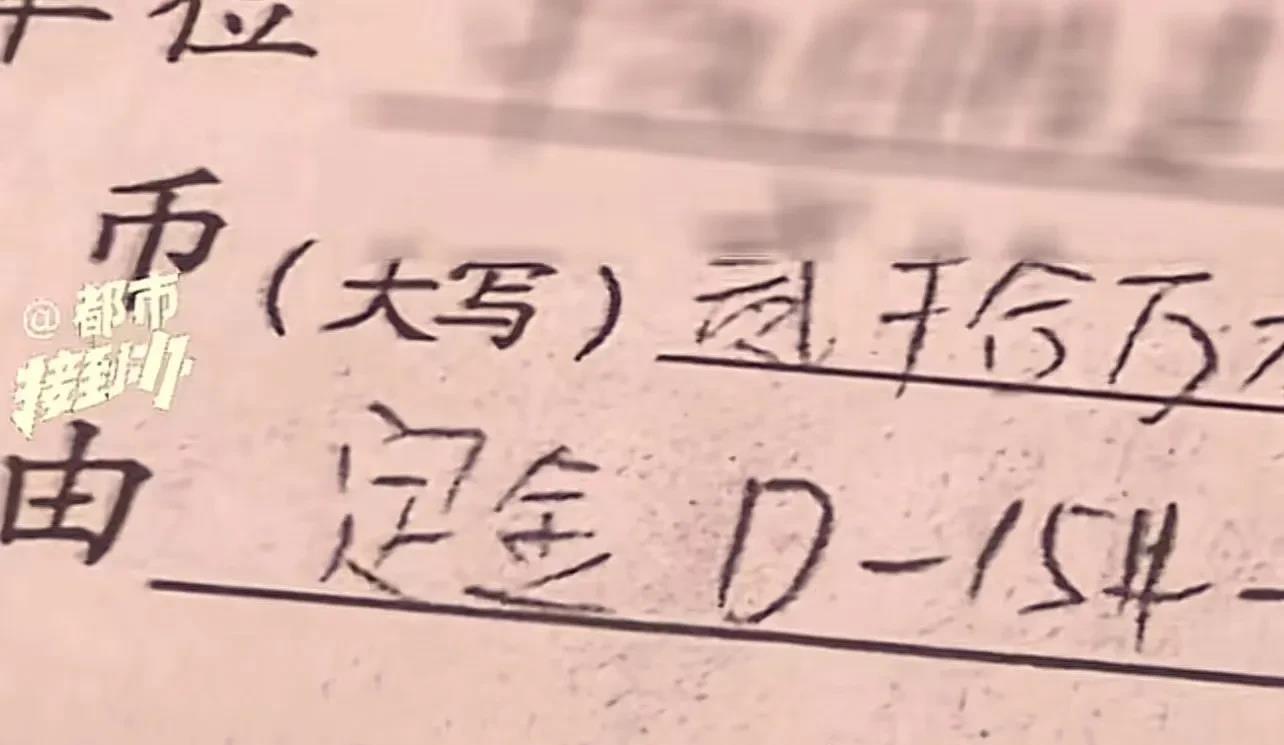 单位
币(大写)贰拾万
@都市
接到办
由 定金 D-15#-